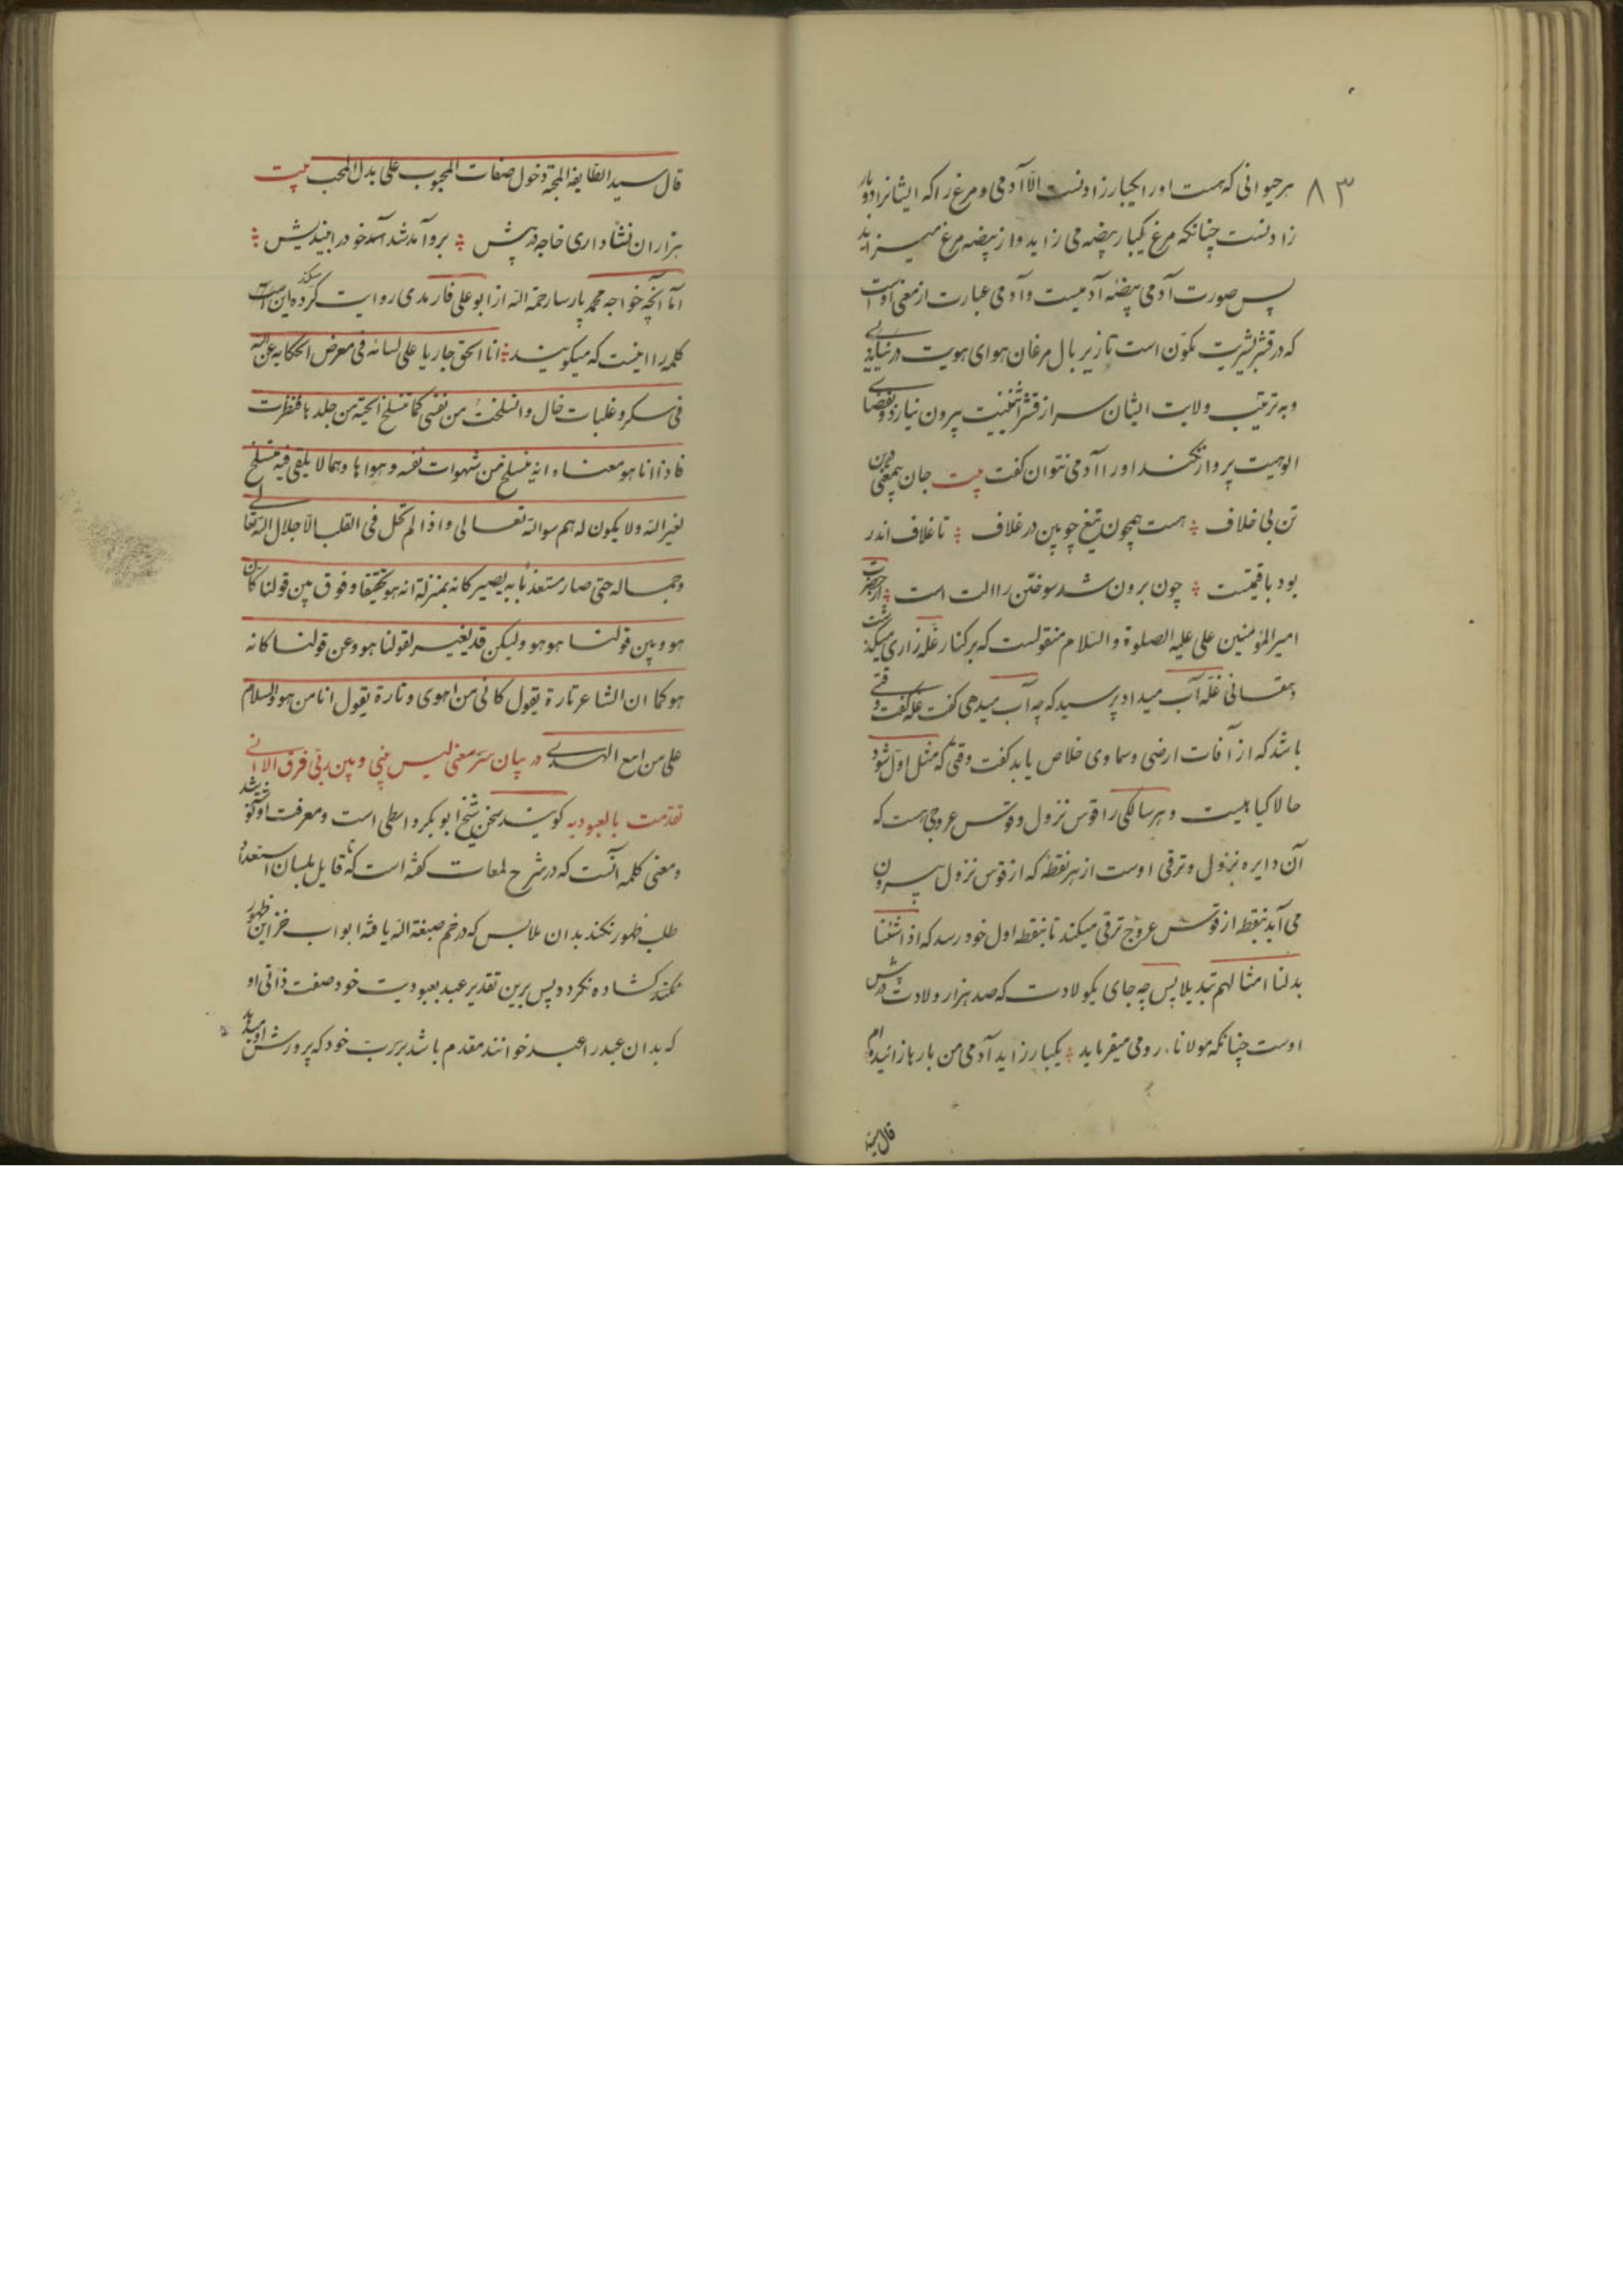 ۸۳
هر حیوانی که هست او را یکبار زادنست الّا آدمی و مرغ را که ایشانرا دو بار
زادنست چنانکه مرغ یکبار بیضه می زاید و از بیضه مرغ میزاید
پس صورت آدمی بیضهٔ آدمیست و آدمی عبارت از معنی اوست
که در قشر بشریت مکوّن است تا زیر بال مرغان هوای هویت در نیاید
و به ترتیب ولایت ایشان سر از قشر اثنینیت بیرون نیارد و بفضای
الوهیت پرواز نکند او را آدمی نتوان گفت بیت جان بیمعنی درین
تن بی خلاف هست همچون تیغ چوبین در غلاف تا غلاف اندر
بود با قیمتست چون برون شد سوختن را الت است از حضرت
امیر المؤمنین علی علیه الصلوة و السّلام منقولست که بر کنار غلّه زاری میگذشت
دهقانی غلّه آب میداد پرسید که چه آب میدهی گفت غله گفت وقتی
باشد که از آفات ارضی و سماوی خلاص یابد گفت وقتی که مثل اوّل شود
حالا گیاهیست و هر سالکی را قوس نزول و قوس عروجی هست که
آن دایره نزول و ترقی اوست از هر نقطهٔ که از قوس نزول بیرون
می آید بنقطه از قوس عروج ترقی میکند تا بنقطه اول خود رسد که اذا شئنا
بدلنا امثالهم تبدیلا پس چه جای یکولادت که صد هزار ولادت در پیش
اوست چنانکه مولانا رومی میفرماید یکبار زاید آدمی من بارها زائیده ام
قال سید
قال سید الطایفه المحبّة دخول صفات المحبوب علی بدل المحب بیت
هزاران نشأ داری خاجه در پیش برو آمد شد خود را بیندیش
امّا آنچه خواجه محمد پارسا رحمة الله از ابو علی فارمدی روایت کرده این است
کلمه را اینست که میکویند انا الحق جاریا علی لسانه فی معرض الحکایه عن الله
فی سکر و غلبات حال و انسلخت من نفسی کما تنسلخ الحیّة من جلدها فنظرت
فاذا انا هو معناه انه ینسلخ من شهوات نفسه و هواها و همها لا یلقی فیه منسلخ
لغیر الله ولا یکون له هم سوالله تعالی و اذا لم تحل فی القلب الّا جلال الله تعالی
و جماله حتی صار مستغرقا به یصیر کانه بمنزلة انه هو تحقیقا و فوق بین قولنا کان
هو و بین قولنا هو هو ولیکن قد یعبر لقولنا هو و عن قولنا کانه
هو کما ان الشاعر تارة یقول کانی من اهوی و تارة یقول انا من هو و السلام
علی من اتبع الهدی در بیان سرّ معنی لیس بینی و بین ربّی فرق الا انی
تقدّمت بالعبودیه کویند سخن شیخ ابو بکر واسطی است و معرفت
و معنی کلمه آنست که در شرح لمعات گفته است که تا قایل بلسان استعداد
طلب ظهور نکند بدان ملابس که در خم صبغة الله یافته ابواب خزاین ظهور
نکند گشاده نگردد پس برین تقدیر عبد بعبودیت خود صفت ذاتی او
که بدان عبد را عبد خوانند مقدم باشد بر ربّ خود که پرورش